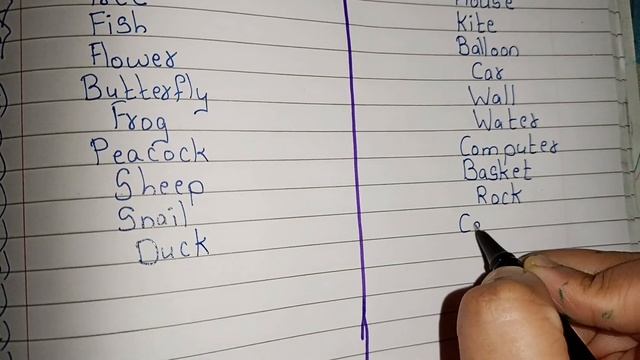 Fish
Flower
Butterfly
Frog
Peacock
Sheep
Snail
Duck
House
Kite
Balloon
Car
Wall
Water
Computer
Basket
Rock
Co